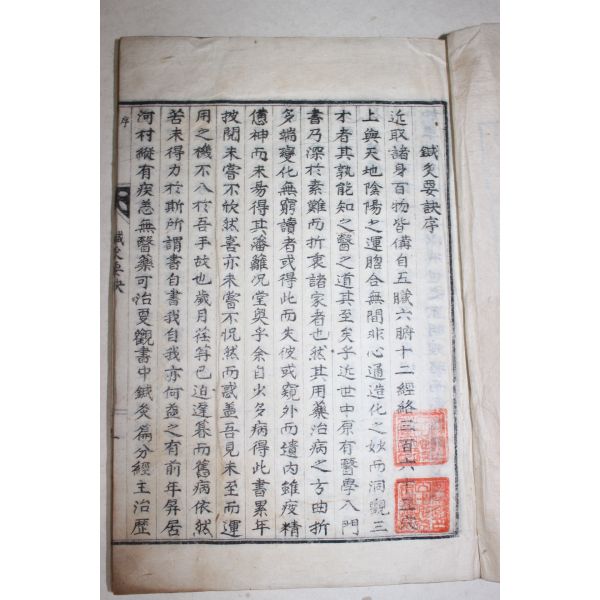 鍼灸要訣序
近取諸身百物皆備自五臟六腑十二經絡三百六十五
上與天地陰陽之運脗合無間非心通造化之妙而洞觀三
才者其孰能知之醫之道其至矣乎近世中原有醫學入門
書乃深於素難而折衷諸家者也然其用藥治病之方曲折
多端變化無窮讀者或得此而失彼或窺外而遺內雖疲精
憊神而未易得其藩籬况堂奧乎余自少多病得此書累年
按閱未嘗不忻然喜亦未嘗不怳然而惑盖吾見未至而運
用之機不入於吾手故也歲月荏苒已迫遲暮而舊病依然
若未得力於斯所謂書自書我自我亦何益之有前年屏居
河村縱有疾恙無醫藥可治更觀書中鍼灸篇分經主治歷
序
鍼灸要訣